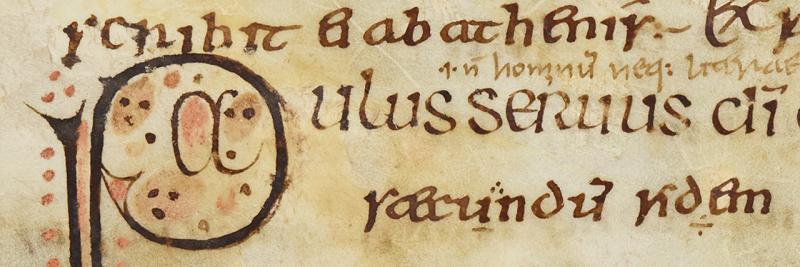 scribit & ab athenis.~
.i. n̄ hominū neq:
Paulus seruus dī
secundū fidem